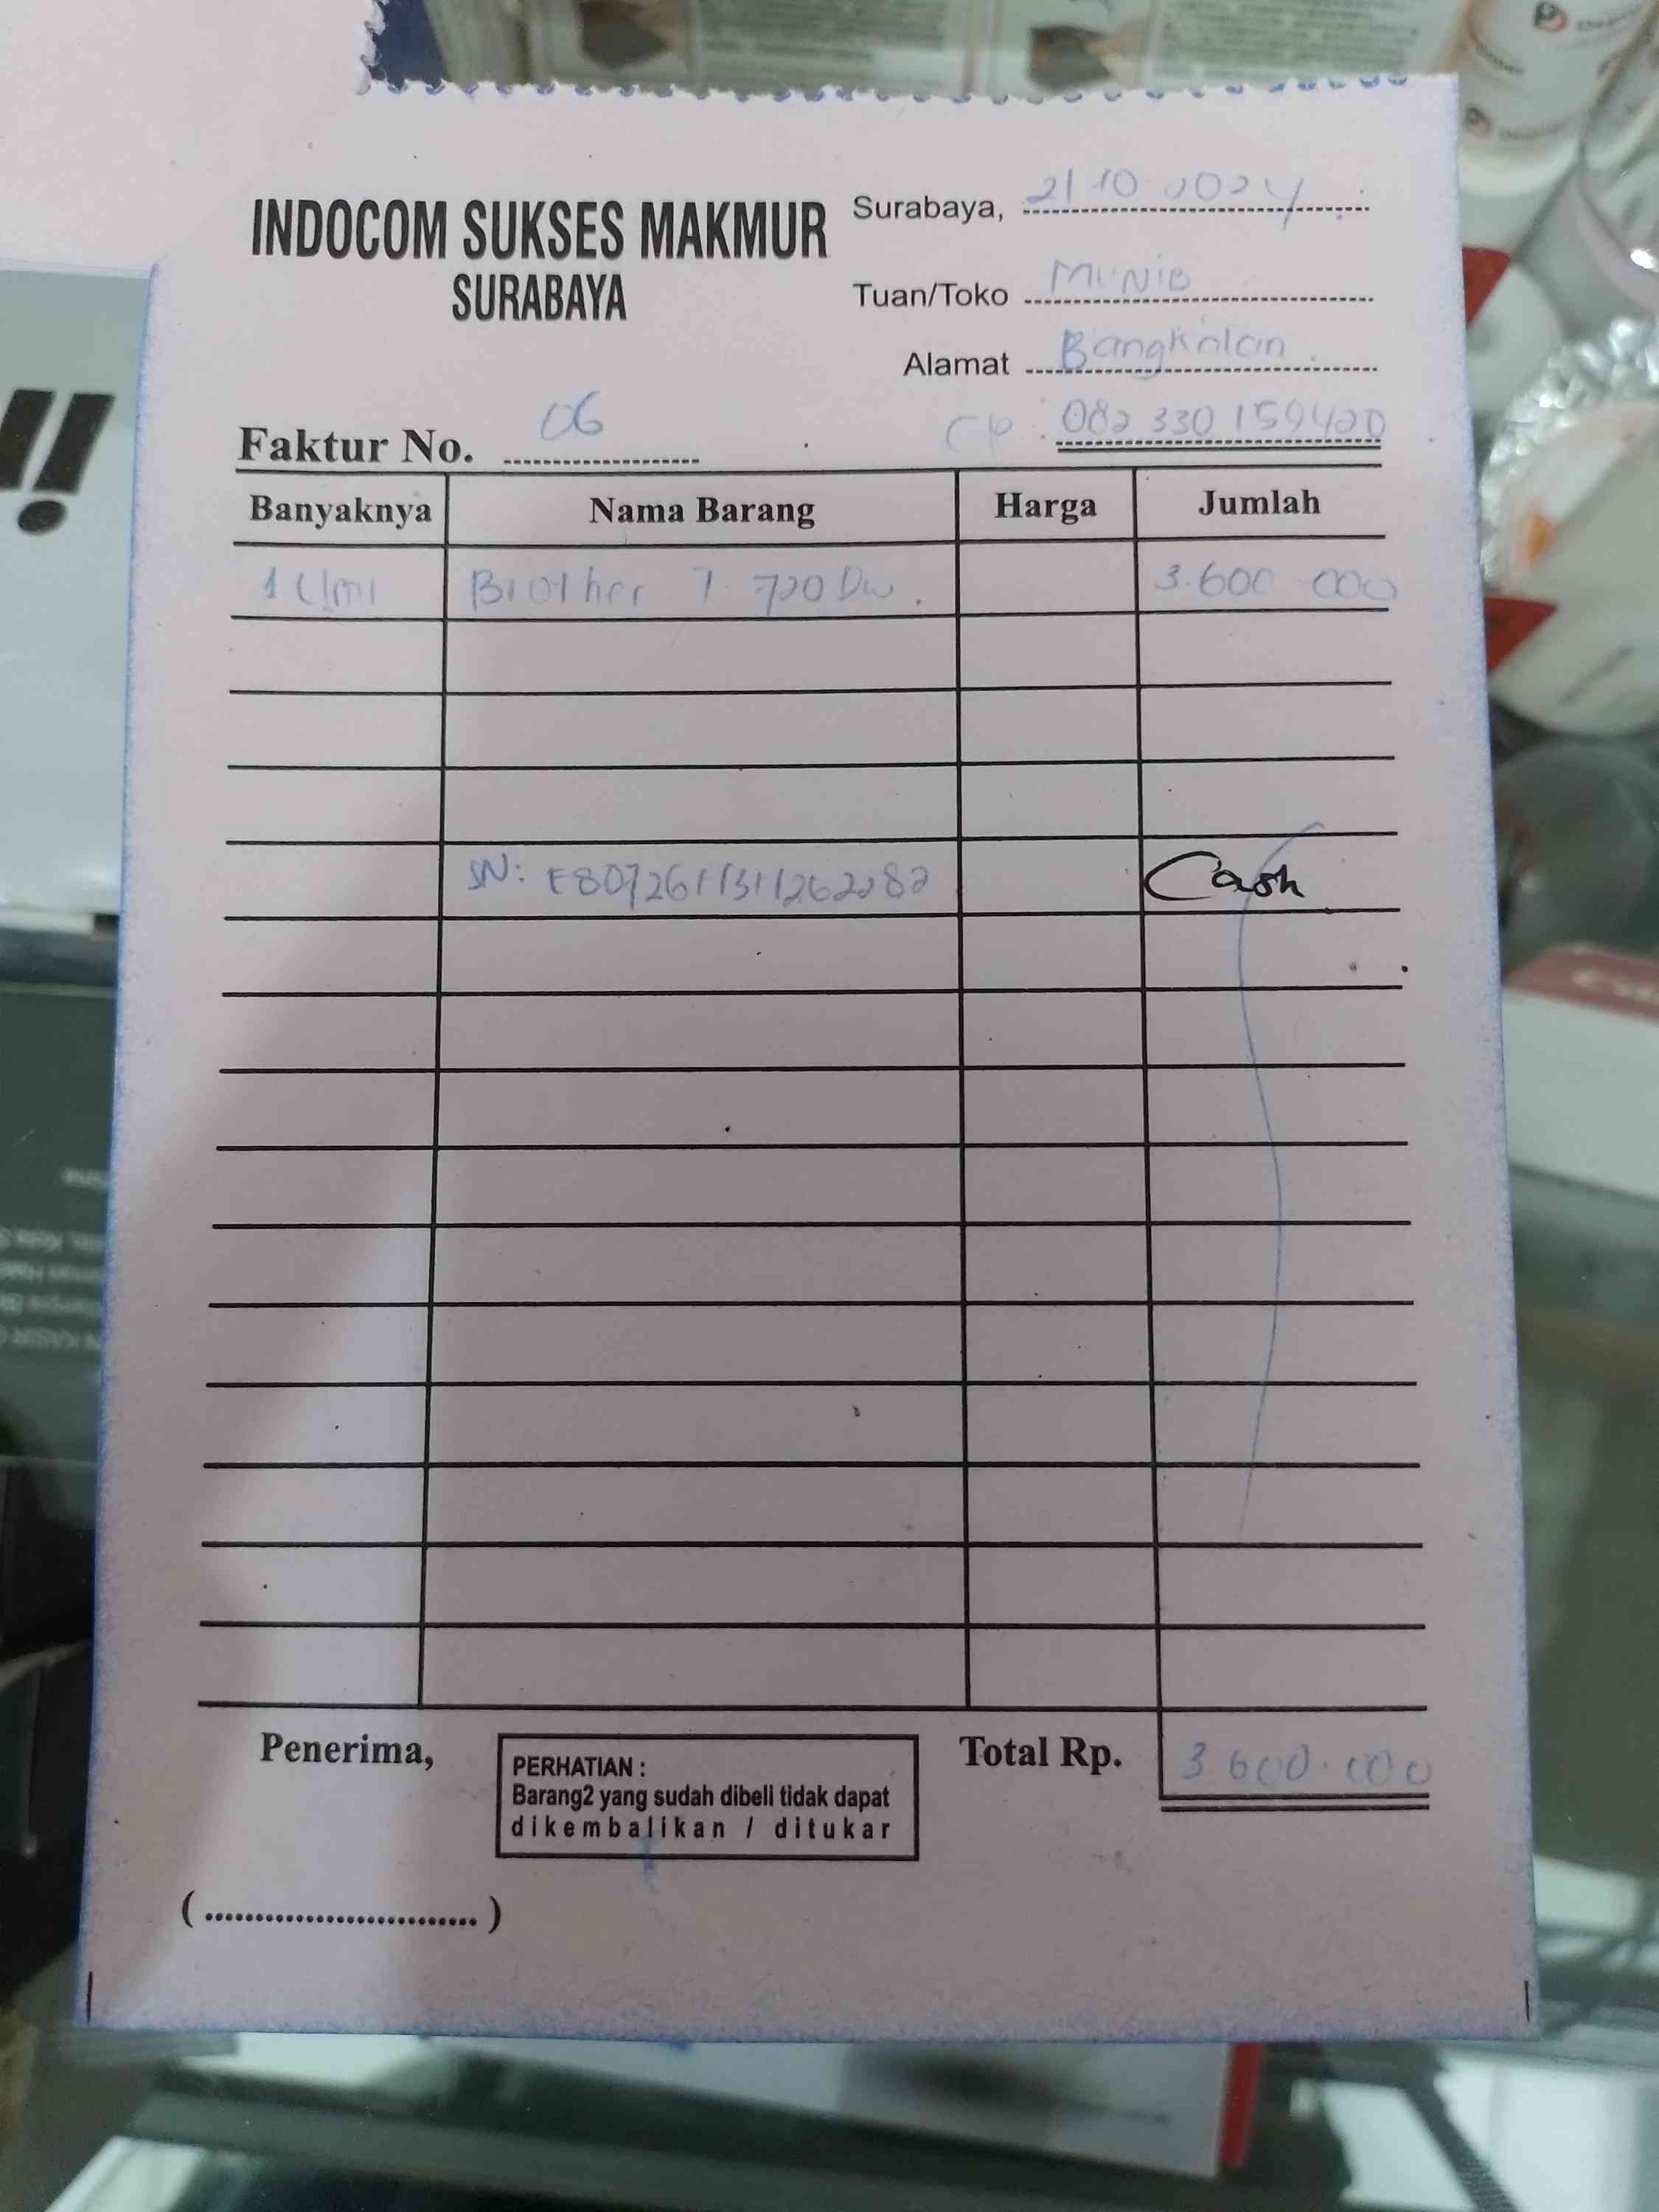 INDOCOM SUKSES MAKMUR
SURABAYA
Surabaya, 21 10 2024
Tuan/Toko MUNIB
Alamat Bangkalan
CP. 082 330 159420
Faktur No. 06
Banyaknya Nama Barang Harga Jumlah
1 Unit Brother T 720 DW. 3.600 000
SN: E80726 Cash
PERHATIAN :
Penerima, Total Rp. 3 600.000
Barang2 yang sudah dibeli tidak dapat
dikembalikan / ditukar
(........................)